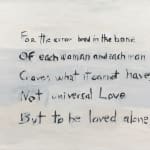 For the error bred in the bone
Of each woman and each man
Craves what it cannot have,
Not universal Love
But to be loved alone